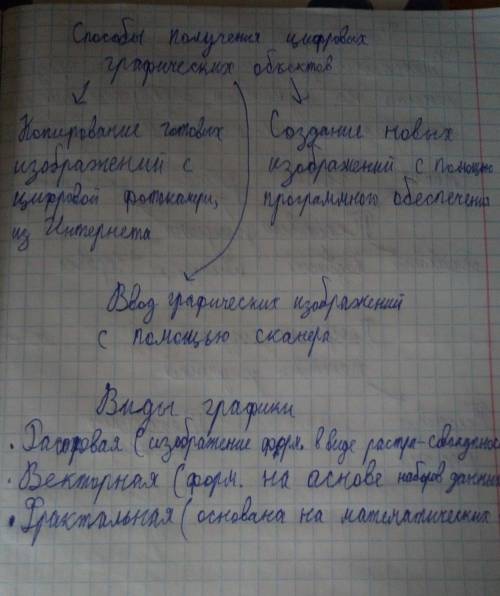 Способы получения цифровых
графических объектов
Копирование готовых
изображений с
цифровой фотокамеры,
из Интернета
Создание новых
изображений с помощью
программного обеспечения
Ввод графических изображений
с помощью сканера
Виды графики
• Растровая (изображение форм. в виде растра-
• Векторная (форм. на основе наборов данных
• Фрактальная (основана на математических